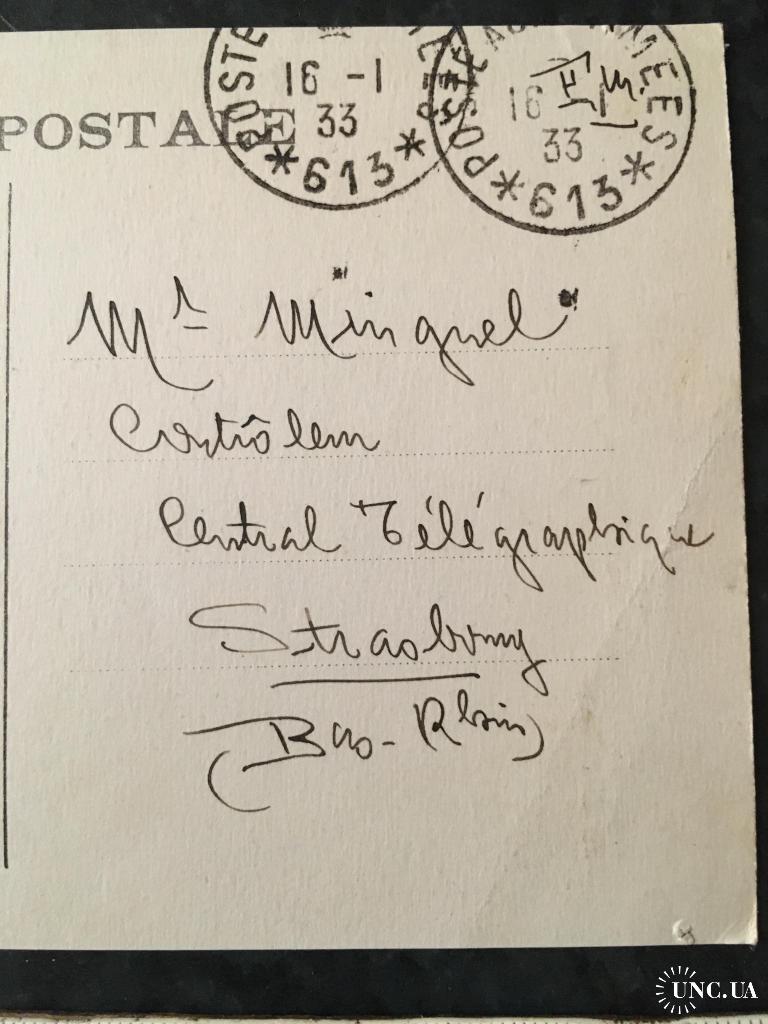 POSTE
16 -1
33
*613*
POSTALE
POSTES AUX ARMEES
16
F.M.
33
*613*
Mr Minguel
Contrôleur
Central Télégraphique
Strasbourg
(Bas-Rhin)
UNC.UA